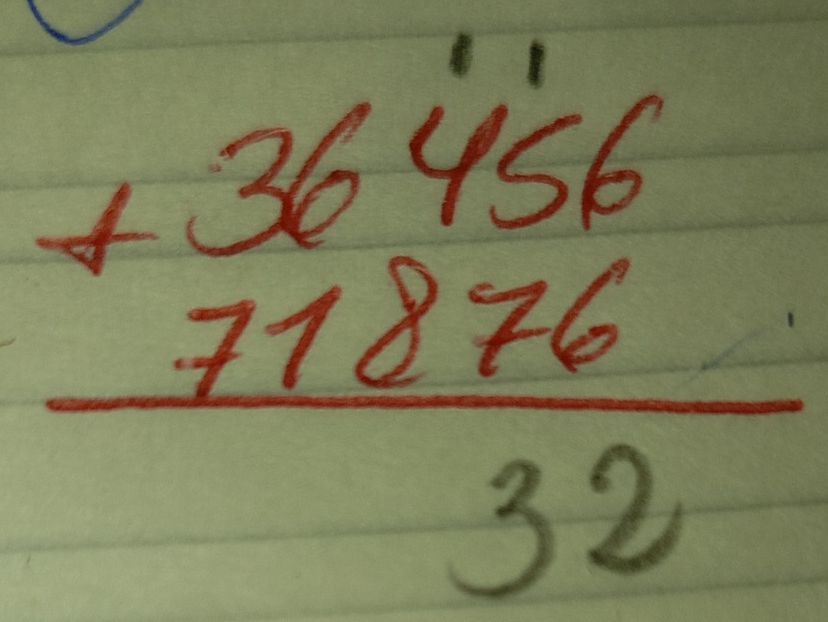 ı ı
+ 36 456
71 876
32